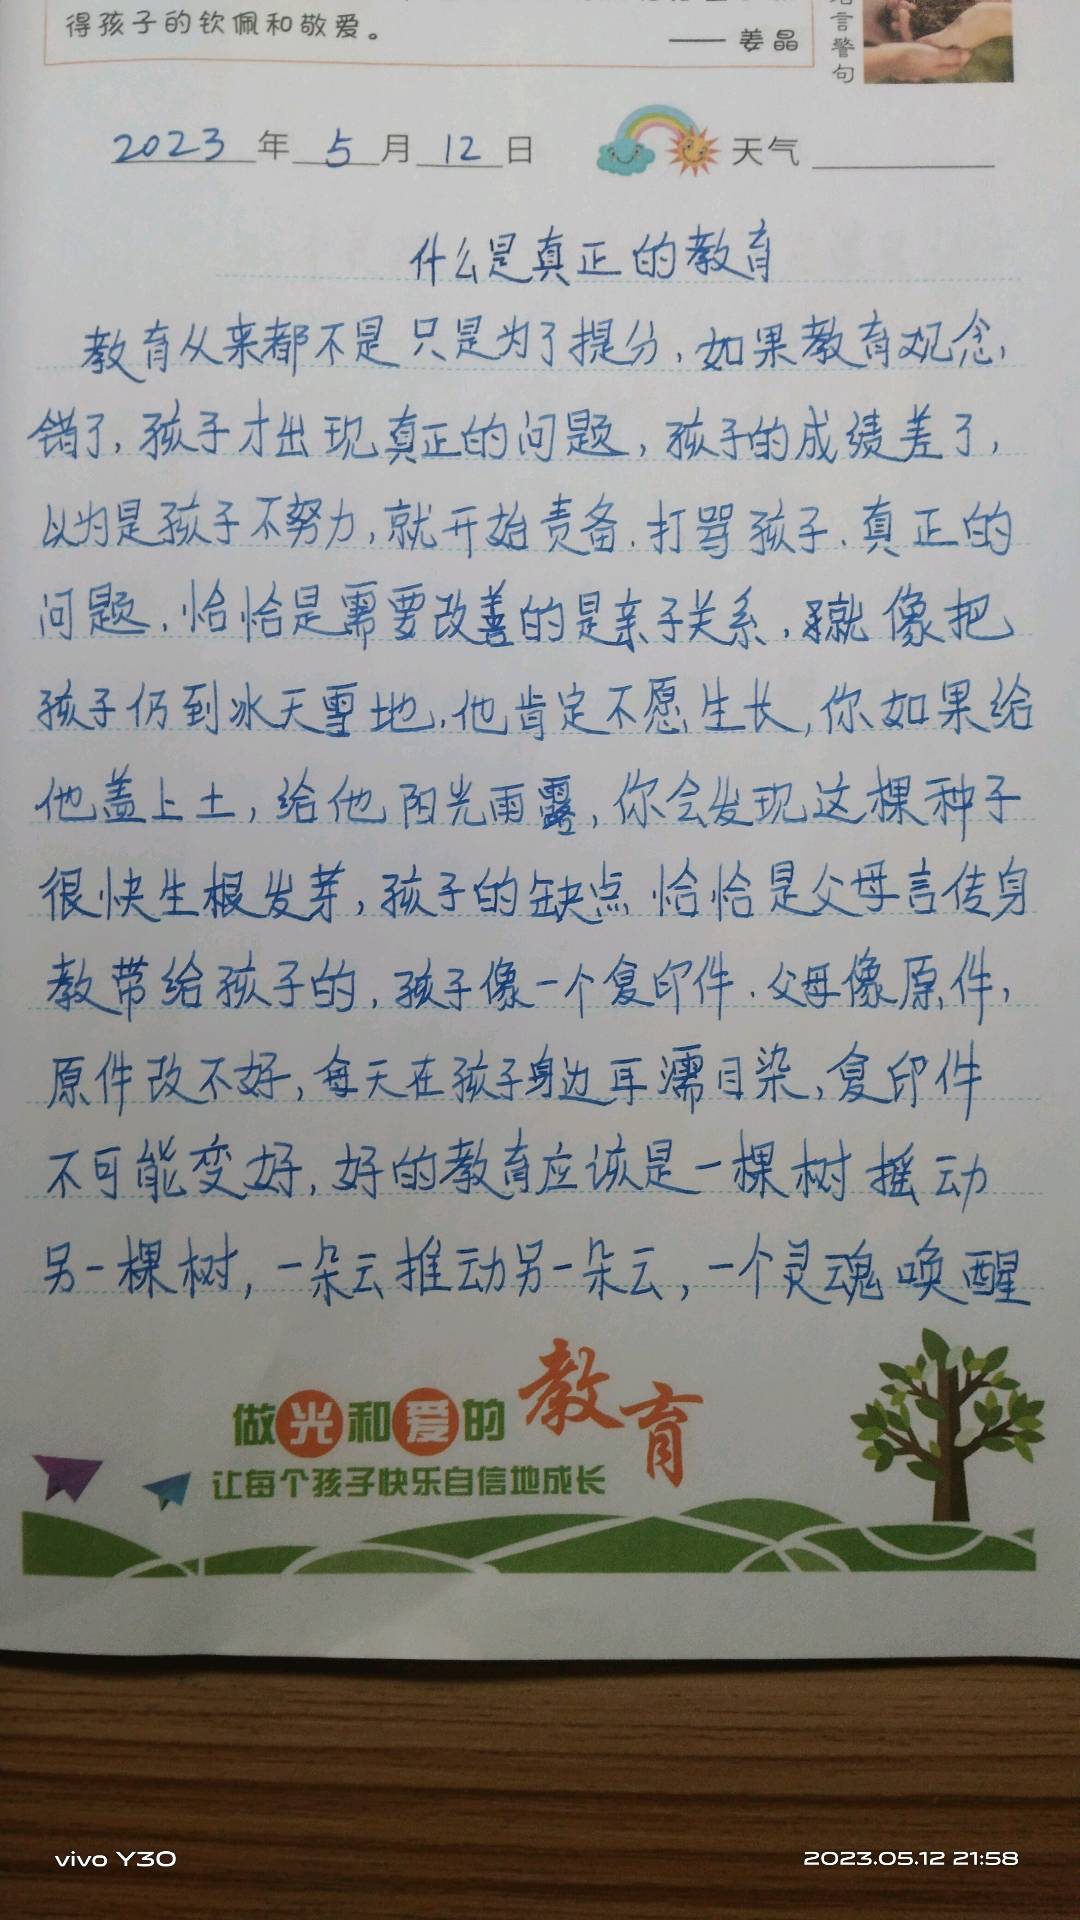 得孩子的钦佩和敬爱。
—— 姜晶
言警句
2023年5月12日 天气
什么是真正的教育
教育从来都不是只是为了提分，如果教育观念，
错了，孩子才出现真正的问题，孩子的成绩差了，
以为是孩子不努力，就开始责备．打骂孩子．真正的
问题，恰恰是需要改善的是亲子关系，就像把
孩子仍到冰天雪地，他肯定不愿生长，你如果给
他盖上土，给他阳光雨露，你会发现这棵种子
很快生根发芽，孩子的缺点 恰恰是父母言传身
教带给孩子的，孩子像一个复印件．父母像原件，
原件改不好，每天在孩子身边耳濡目染，复印件
不可能变好，好的教育应该是一棵树摇动
另一棵树，一朵云推动另一朵云，一个灵魂唤醒
做光和爱的教育
让每个孩子快乐自信地成长
vivo Y30
2023.05.12 21:58